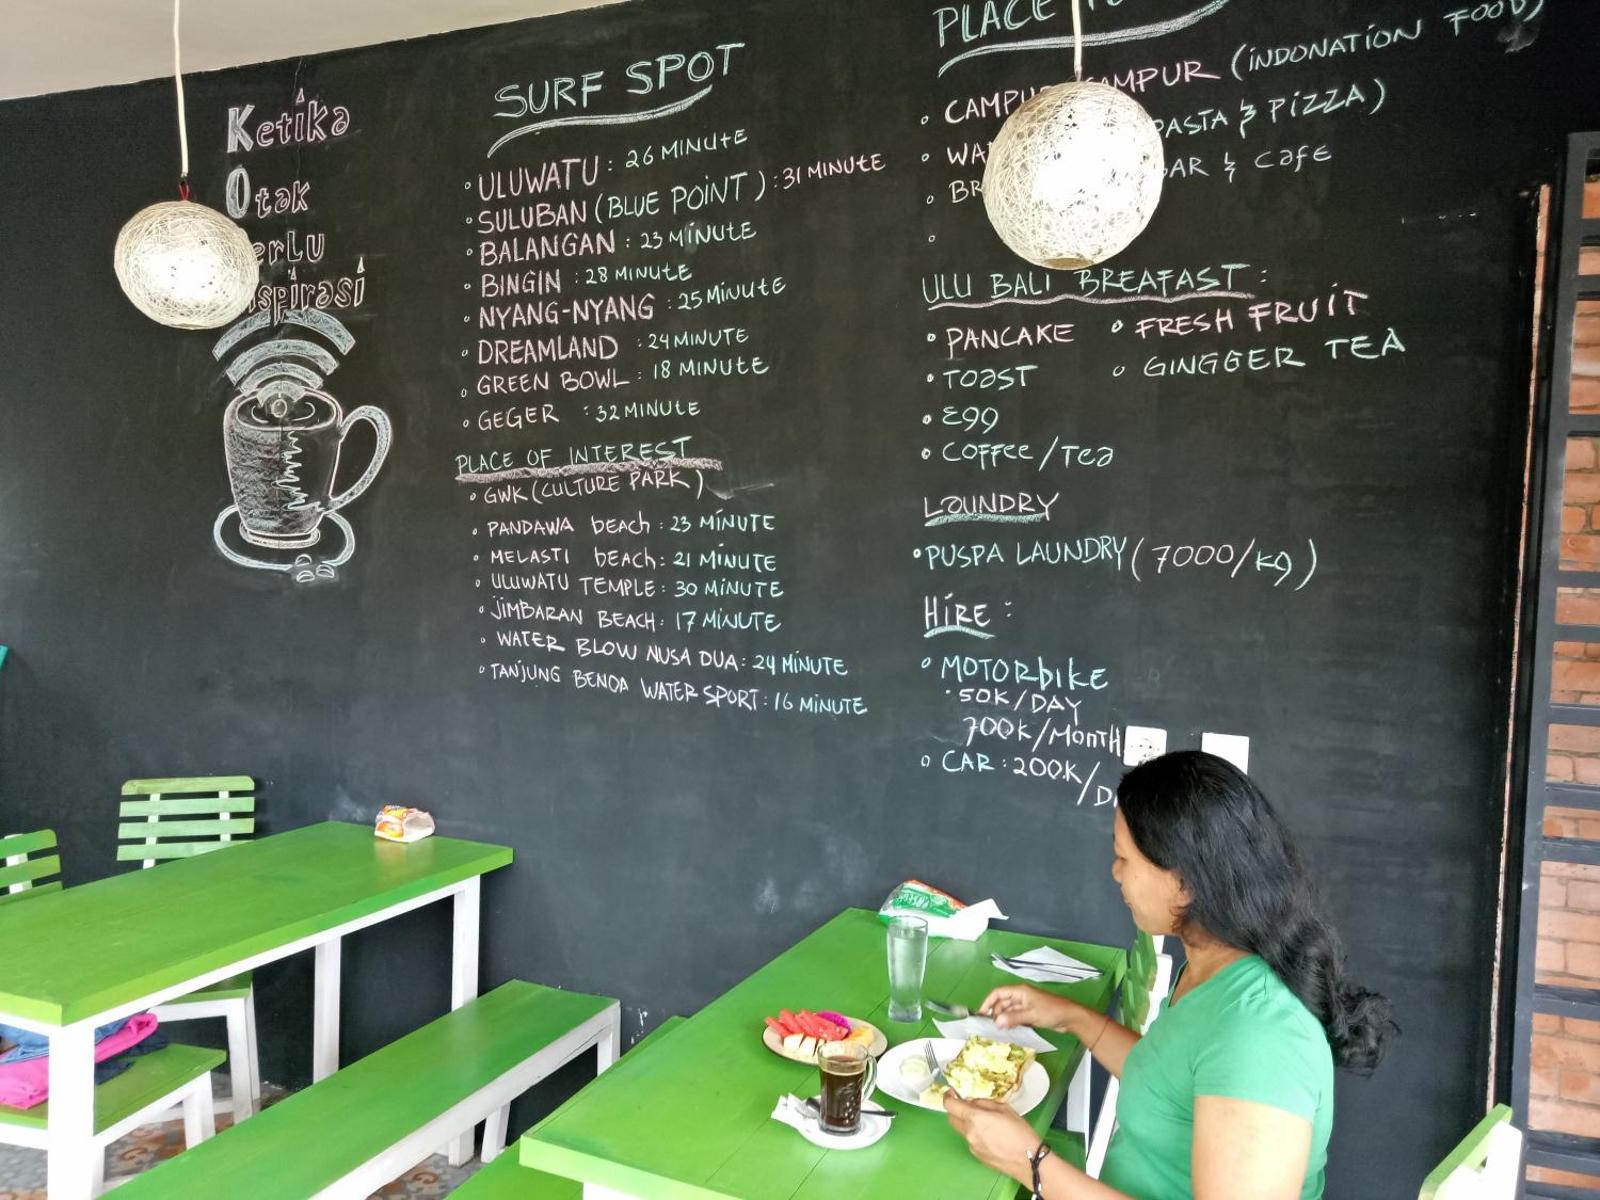 Ketika
Otak
erLu
nspirasi
SURF SPOT
ULUWATU : 26 MINUTE
SULUBAN (BLUE POINT) : 31 MINUTE
BALANGAN : 23 MINUTE
BINGIN : 28 MINUTE
NYANG-NYANG : 25 MINUTE
DREAMLAND : 24 MINUTE
GREEN BOWL : 18 MINUTE
GEGER : 32 MINUTE
PLACE OF INTEREST
GWK (CULTURE PARK)
PANDAWA beach : 23 MINUTE
MELASTI beach : 21 MINUTE
ULUWATU TEMPLE : 30 MINUTE
JIMBARAN BEACH : 17 MINUTE
WATER BLOW NUSA DUA : 24 MINUTE
TANJUNG BENOA WATER SPORT : 16 MINUTE
PLACE
(INDONATION FOOD)
PASTA & PIZZA)
& Cafe
ULU BALI BREAFAST :
PANCAKE
FRESH FRUIT
TOAST
GINGGER TEA
Egg
COFFEE/TEA
LAUNDRY
PUSPA LAUNDRY (7000/KG)
HIRE :
MOTORbIKE
50K/DAY
700K/MONTH
CAR : 200K